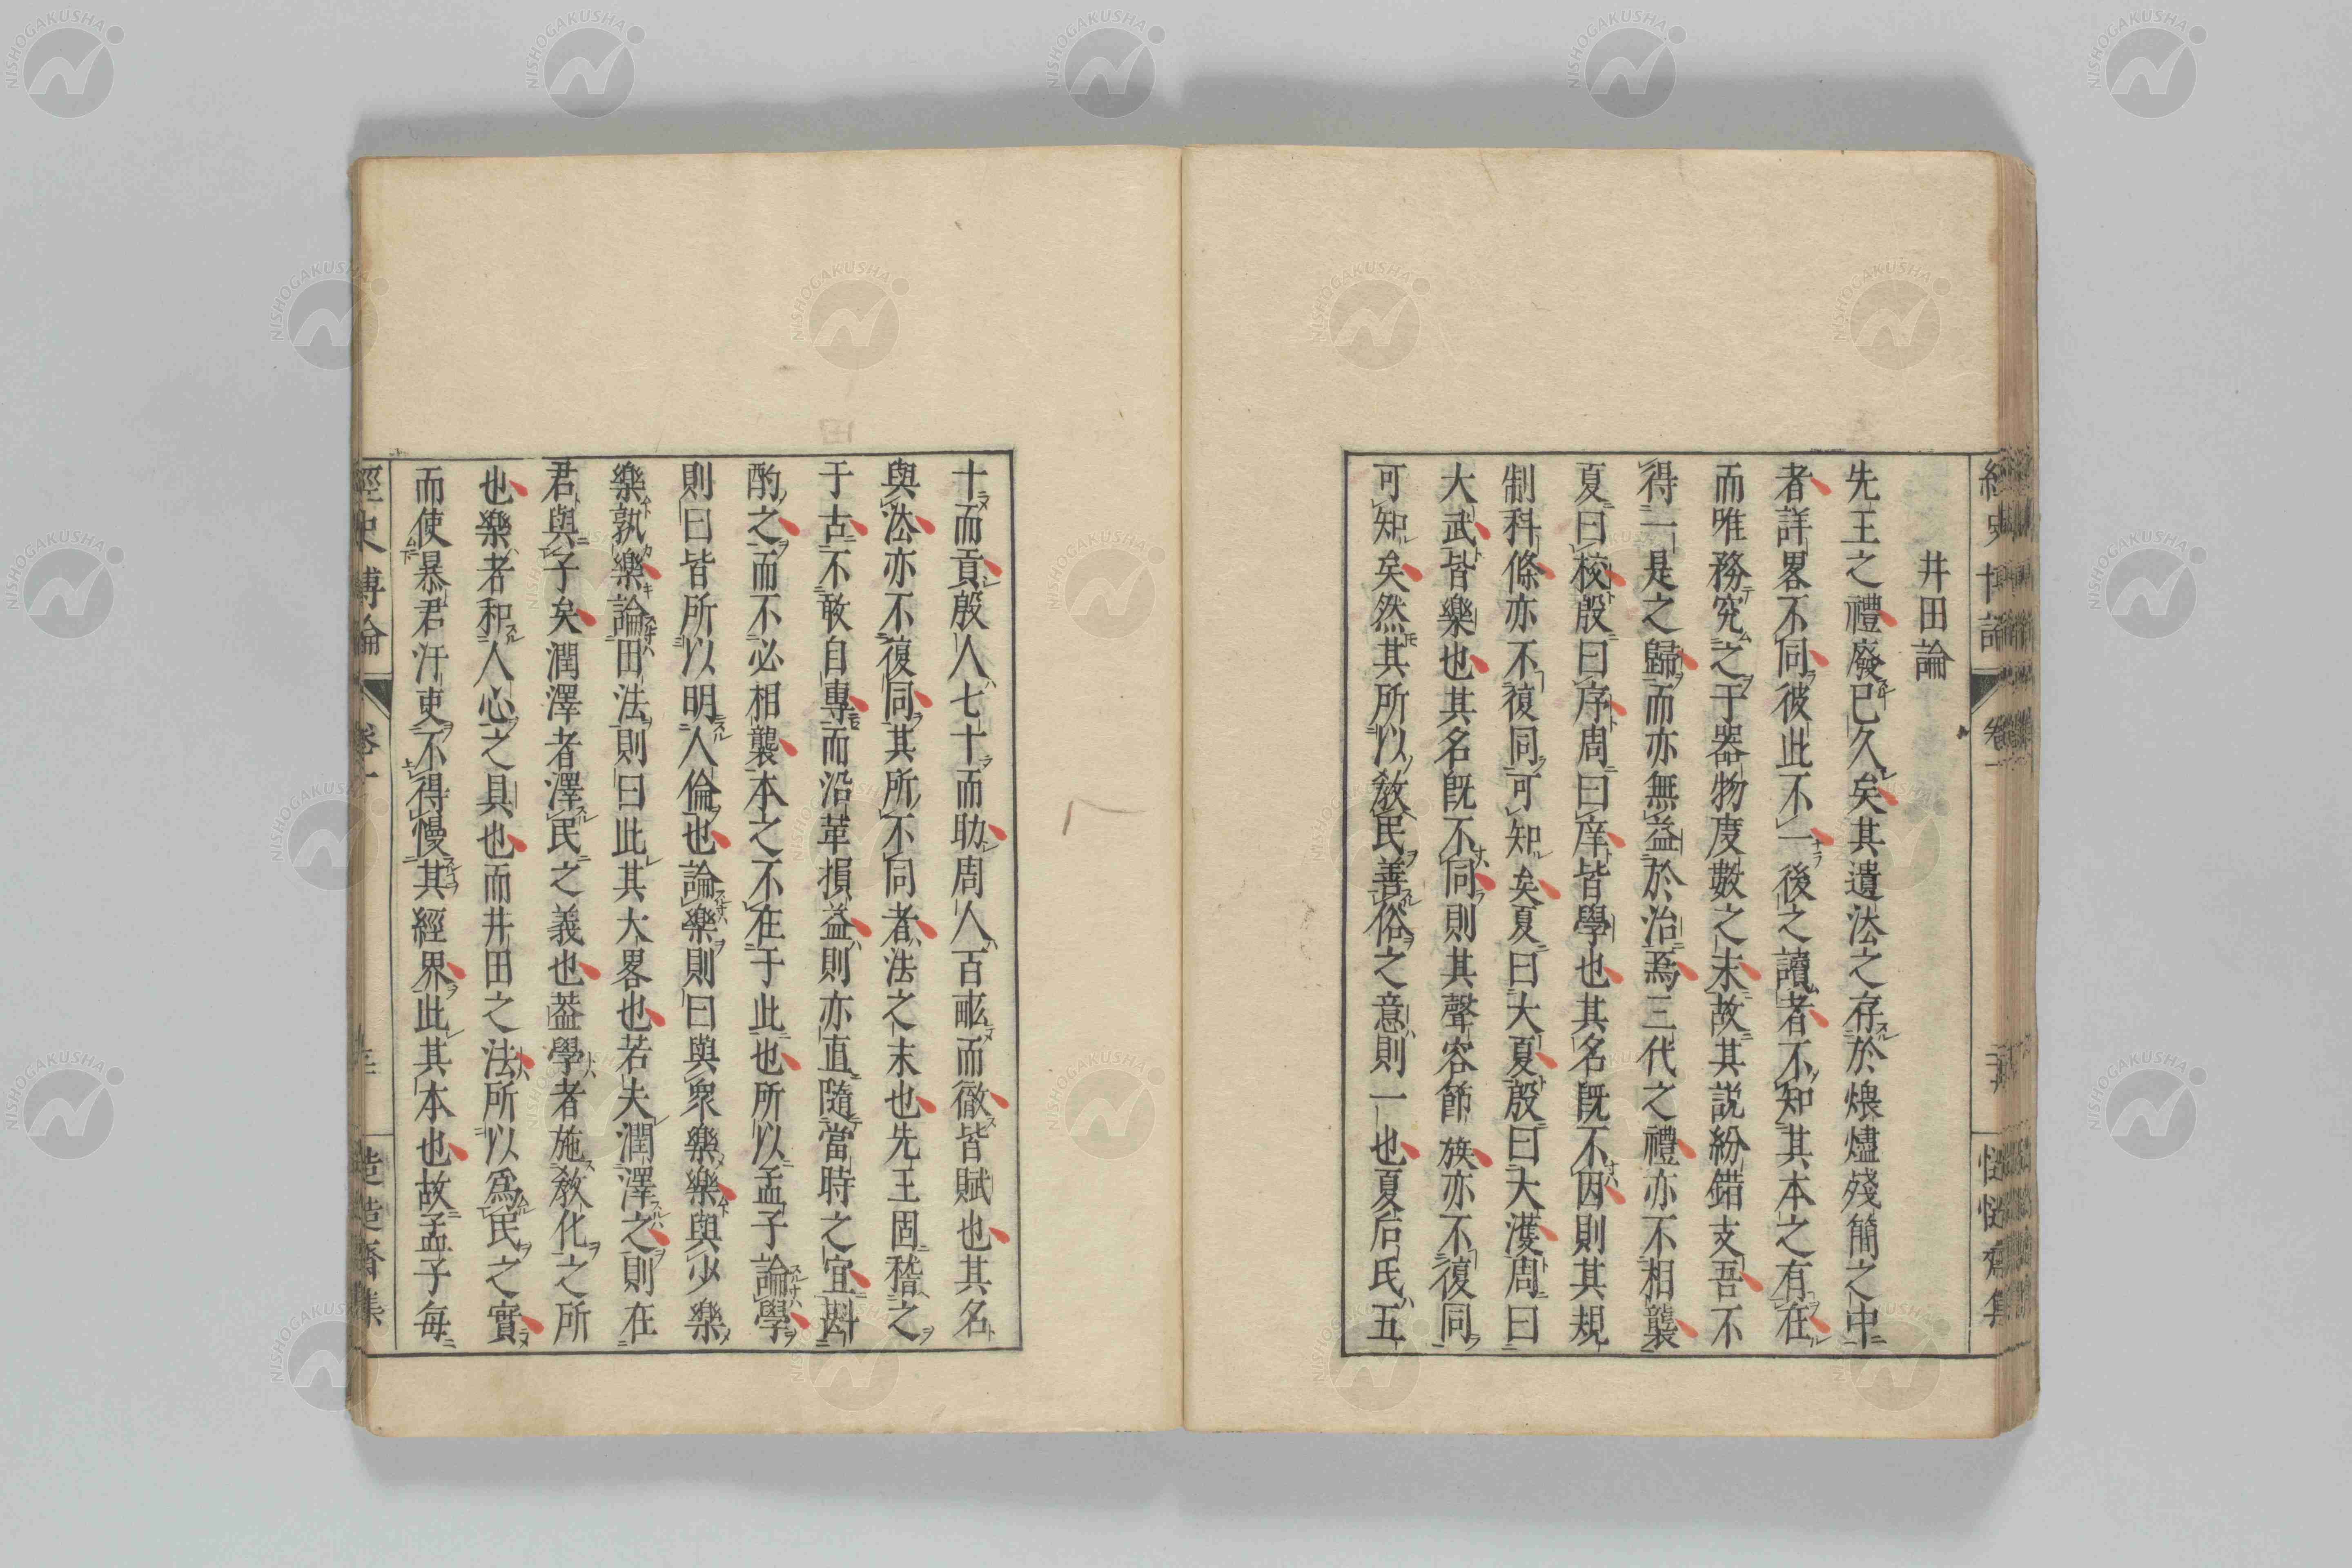 井田論
先王之禮廢已久矣其遺法之存於煨燼殘簡之中
者詳畧不同彼此不一後之讀者不知其本之有在
而唯務究之于器物度數之末故其説紛錯支吾不
得一是之歸而亦無益於治焉三代之禮亦不相襲
夏曰校殷曰序周曰庠皆學也其名既不因則其規
制科條亦不復同可知矣夏曰大夏殷曰大濩周曰
大武皆樂也其名既不同則其聲容節族亦不復同
可知矣然其所以敎民善俗之意則一也夏后氏五
十而貢殷人七十而助周人百畝而徹皆賦也其名
與法亦不復同其所不同者法之末也先王固稽之
于古不敢自專而沿革損益則亦直隨當時之宜斟
酌之而不必相襲本之不在于此也所以孟子論學
則曰皆所以明人倫也論樂則曰與衆樂樂與少樂
樂孰樂論田法則曰此其大畧也若夫潤澤之則在
君與子矣潤澤者澤民之義也葢學者施敎化之所
也樂者和人心之具也而井田之法所以爲民之實
而使暴君汙吏不得慢其經界此其本也故孟子每
經史博論
卷一